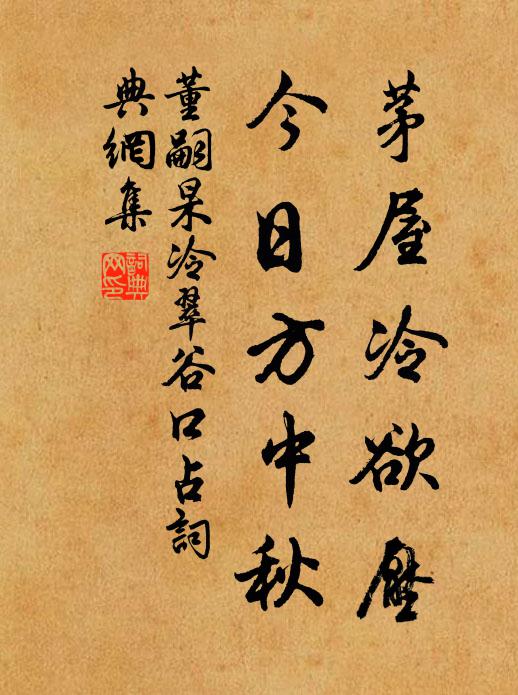 茅屋冷欲壓
今日方中秋
董嗣杲冷翠谷口占詞
典網集
詞典
网印